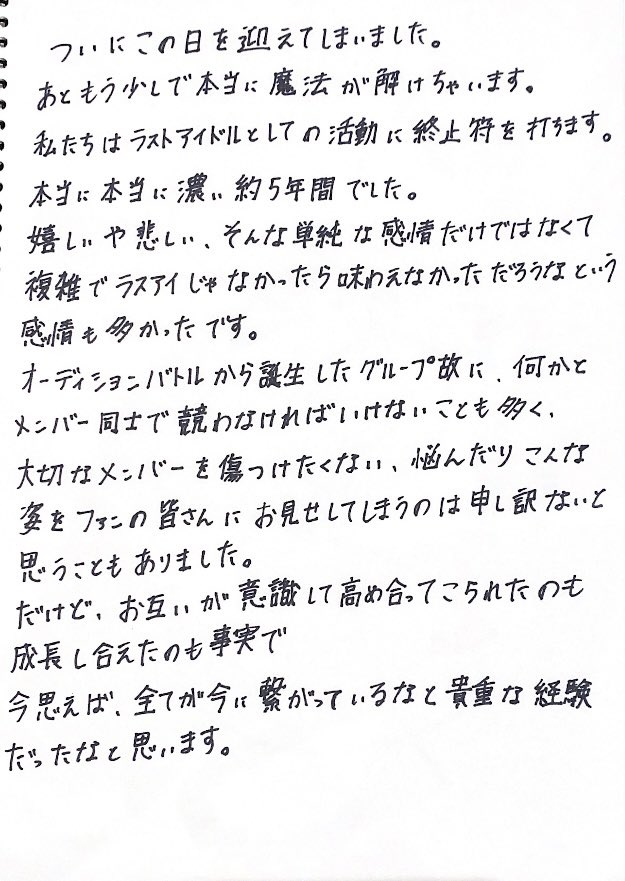 ついにこの日を迎えてしまいました。
あともう少しで本当に魔法が解けちゃいます。
私たちはラストアイドルとしての活動に終止符を打ちます。
本当に本当に濃い約5年間でした。
嬉しいや悲しい、そんな単純な感情だけではなくて
複雑でラスアイじゃなかったら味わえなかっただろうなという
感情も多かったです。
オーディションバトルから誕生したグループ故に、何かと
メンバー同士で競わなければいけないことも多く、
大切なメンバーを傷つけたくない、悩んだりこんな
姿をファンの皆さんにお見せしてしまうのは申し訳ないと
思うこともありました。
だけど、お互いが意識して高め合ってこられたのも
成長し合えたのも事実で
今思えば、全てが今に繋がっているなと貴重な経験
だったなと思います。